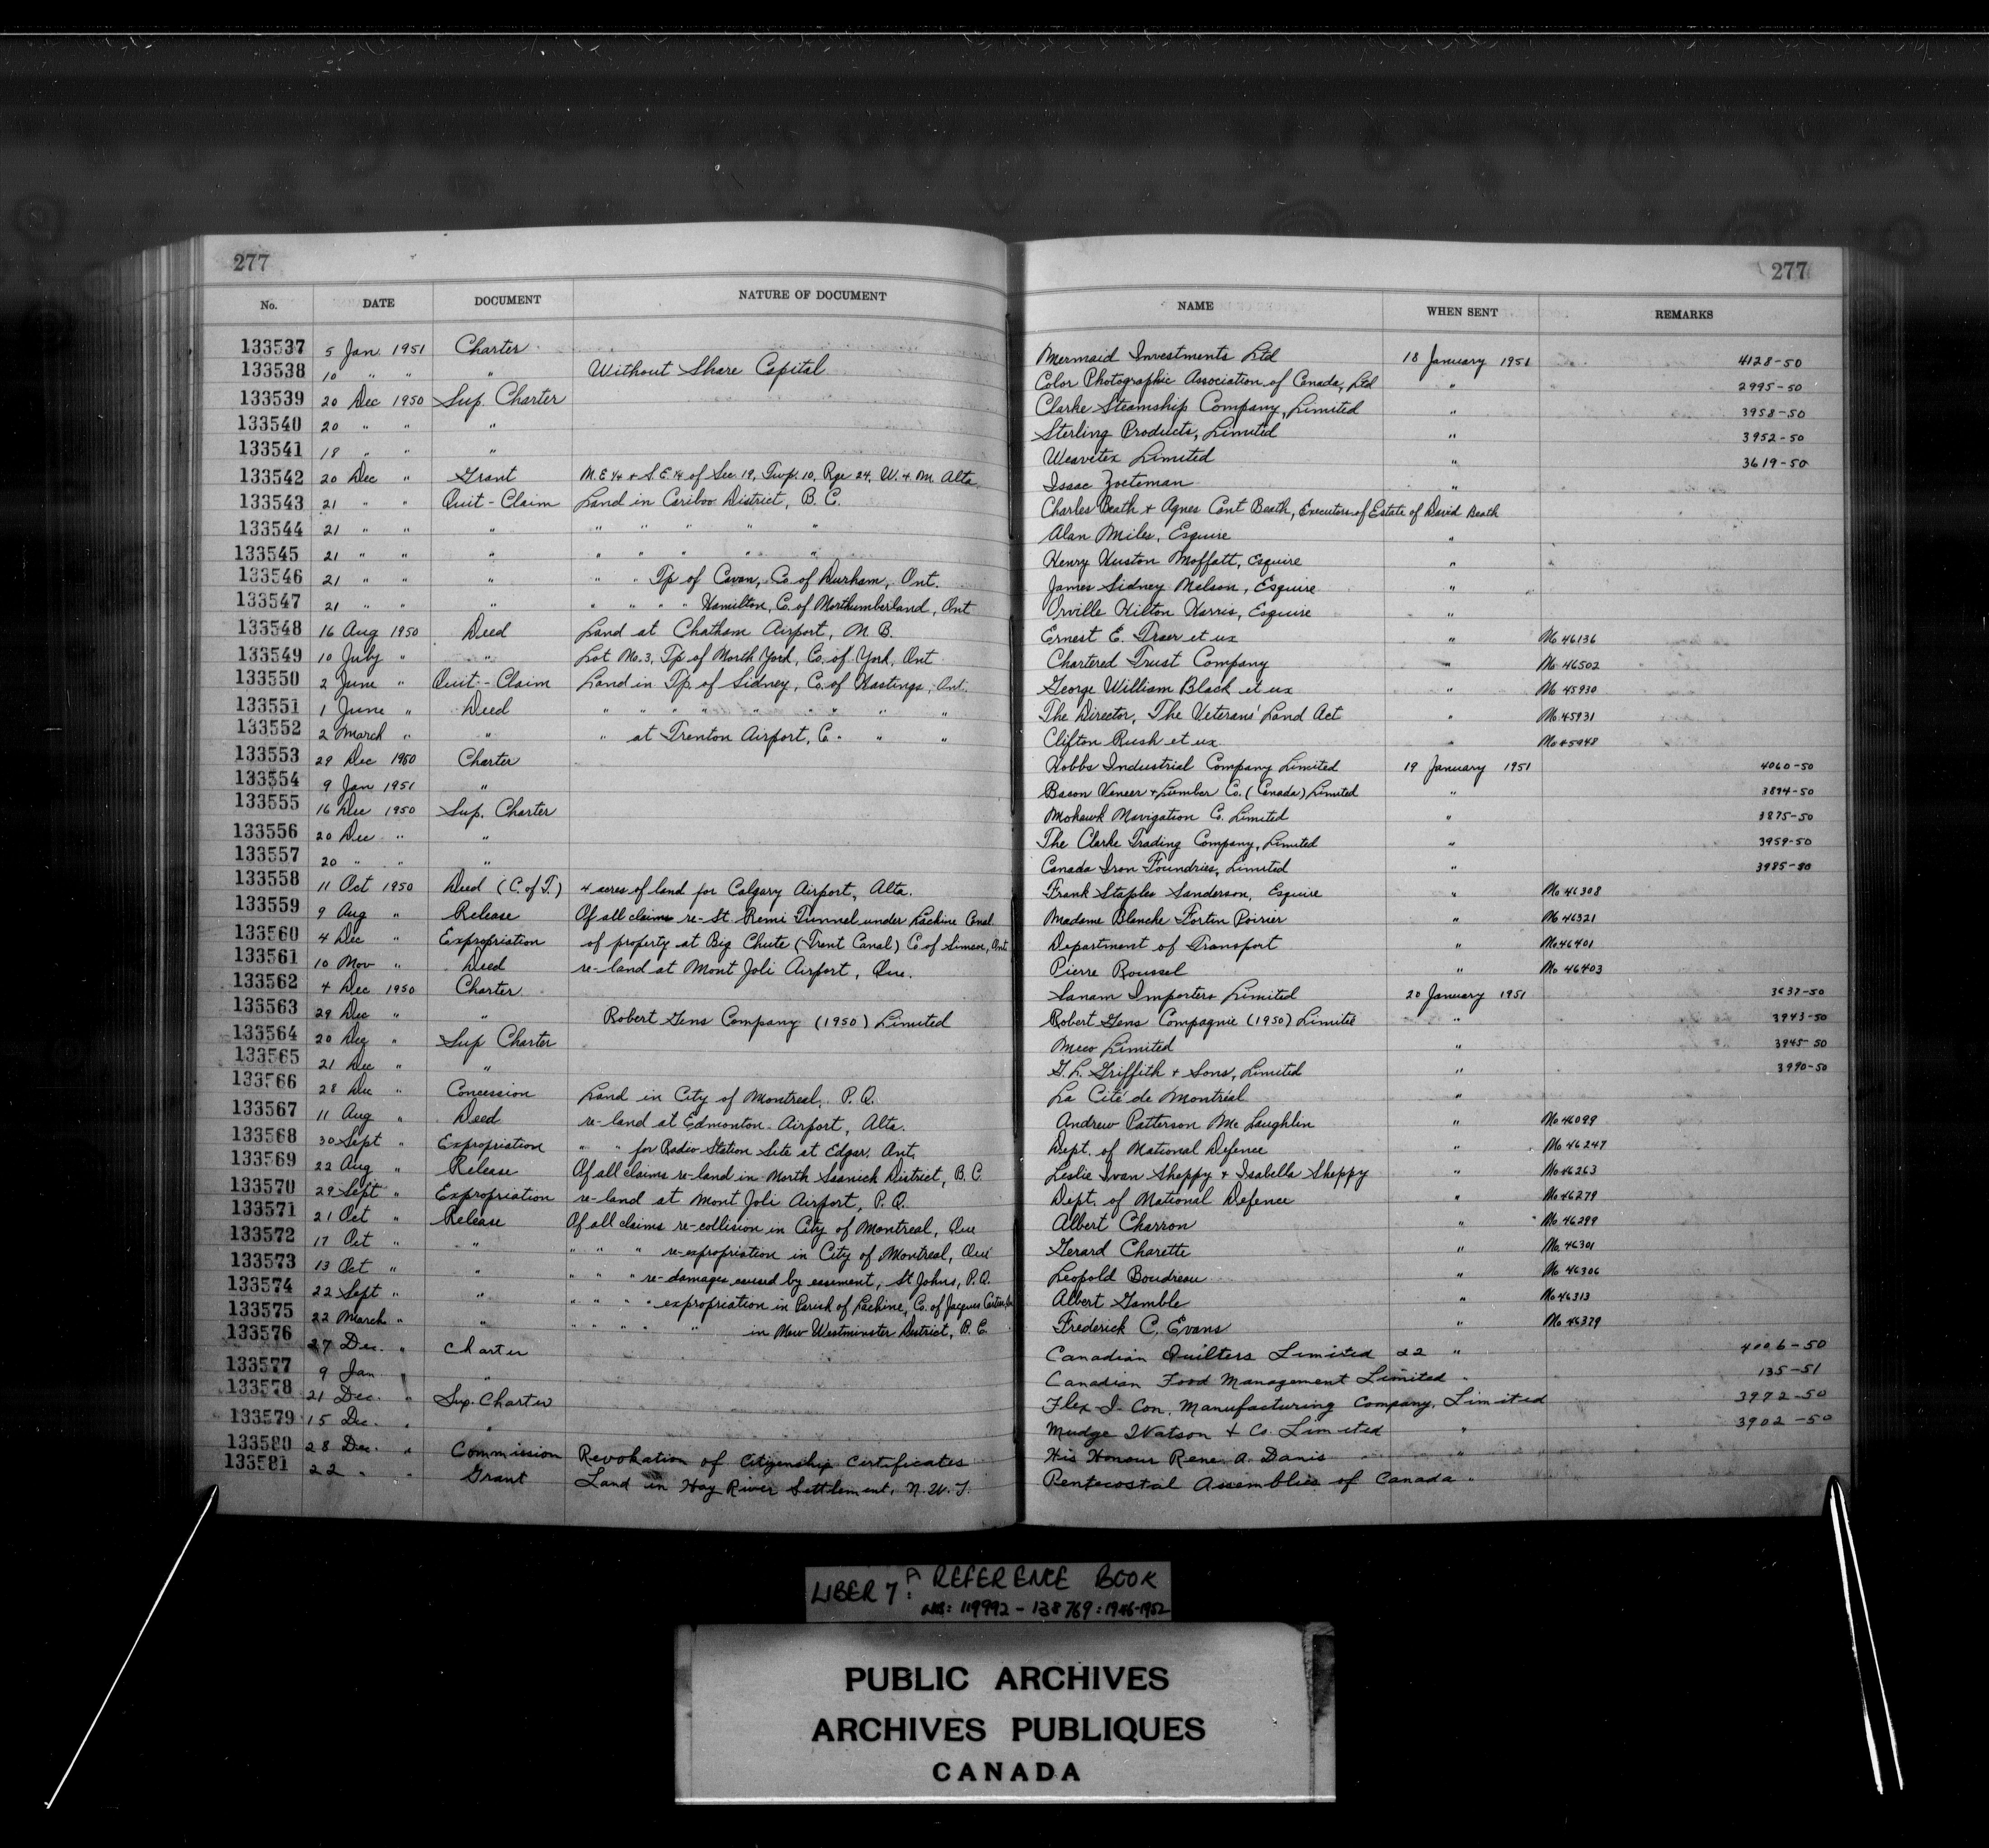 277 277
No. DATE DOCUMENT NATURE OF DOCUMENT NAME WHEN SENT REMARKS
133537 5 Jan 1951 Charter Mermaid Investments Ltd 18 January 1951 4128-50
133538 10 " " " Without Share Capital Color Photographic Association of Canada, Ltd " 2995-50
133539 20 Dec 1950 Sup. Charter Clarke Steamship Company, Limited " 3958-50
133540 20 " " " Sterling Products, Limited " 3952-50
133541 18 " " " Weavetex Limited " 3619-50
133542 20 Dec " Grant N.E 1/4 + S.E 1/4 of Sec. 19, Twp. 10, Rge 24, W. 4. M. Alta. Isaac Zoeteman "
133543 21 " " Quit-Claim Land in Cariboo District, B.C. Charles Beath + Agnes Cant Beath, Executors of Estate of David Beath
133544 21 " " " " " " " " Alan Miles, Esquire "
133545 21 " " " " " " " " Henry Huston Moffatt, Esquire "
133546 21 " " " " " Tp of Cavan, Co. of Durham, Ont. James Sidney Nelson, Esquire "
133547 21 " " " " " " " Hamilton, C. of Northumberland, Ont Orville Hilton Harris, Esquire "
133548 16 Aug 1950 Deed Land at Chatham Airport, N.B. Ernest E. Traer et ux " No 46136
133549 10 July " " Lot No. 3, Tp of North York, Co. of York, Ont Chartered Trust Company " No 46502
133550 2 June " Quit-Claim Land in Tp. of Sidney, Co. of Hastings, Ont. George William Black et ux " No 45930
133551 1 June " Deed " " " " " " " " " The Director, The Veterans' Land Act " No 45931
133552 2 March " " " at Trenton Airport, C. " " " Clifton Rush et ux. " No 45948
133553 29 Dec 1950 Charter Hobbs Industrial Company Limited 19 January 1951 4060-50
133554 9 Jan 1951 " Bacon Veneer + Lumber Co. (Canada) Limited " 3894-50
133555 16 Dec 1950 Sup. Charter Mohawk Navigation C. Limited " 3875-50
133556 20 Dec " " The Clarke Trading Company, Limited " 3959-50
133557 20 " " " Canada Iron Foundries, Limited " 3985-50
133558 11 Oct 1950 Deed (C. of T.) 4 acres of land for Calgary Airport, Alta. Frank Staples Sanderson, Esquire " No 46308
133559 9 Aug " Release Of all claims re-St. Remi Tunnel under Lachine Canal Madame Blanche Fortin Poirier " No 46321
133560 4 Dec " Expropriation of property at Big Chute (Trent Canal) C of Simcoe, Ont Department of Transport " No 46401
133561 10 Nov " Deed re-land at Mont Joli Airport, Que. Pierre Roussel " No 46403
133562 4 Dec 1950 Charter Sanam Importers Limited 20 January 1951 3637-50
133563 29 Dec " " Robert Gens Company (1950) Limited Robert Gens Compagnie (1950) Limitée " 3943-50
133564 20 Dec " Sup Charter Meco Limited " 3945-50
133565 21 Dec " " G. L. Griffith + Sons, Limited " 3990-50
133566 28 Dec " Concession Land in City of Montreal, P.Q. La Cité de Montréal "
133567 11 Aug " Deed re-land at Edmonton Airport, Alta. Andrew Patterson McLaughlin " No 46099
133568 30 Sept " Expropriation " " for Radio Station Site at Edgar, Ont. Dept. of National Defence " No 46247
133569 22 Aug " Release Of all claims re-land in North Saanich District, B.C. Leslie Ivan Skeppy + Isabella Skeppy " No 46263
133570 29 Sept " Expropriation re-land at Mont Joli Airport, P.Q. Dept. of National Defence " No 46279
133571 21 Oct " Release Of all claims re-collision in City of Montreal, Que Albert Charron " No 46299
133572 17 Oct " " " " " re-expropriation in City of Montreal, Que Gerard Charette " No. 46301
133573 13 Oct " " " " " re-damages caused by easement, St Johns, P.Q. Leopold Boudreau " No 46306
133574 22 Sept " " " " " " expropriation in Parish of Lachine, Co. of Jacques Cartier Albert Gamble " No 46313
133575 22 March " " " " " " " in New Westminster District, B.C. Frederick C. Evans " No 46379
133576 27 Dec. " Charter Canadian Quilters Limited 22 " 4006-50
133577 9 Jan " Canadian Food Management Limited " 135-51
133578 21 Dec. " Sup. Charter Flex-I-Con, Manufacturing Company, Limited 3972-50
133579 15 Dec. " " Mudge Watson + Co. Limited " 3902-50
133580 28 Dec. " Commission Revokation of Citizenship Certificates His Honour Rene A. Danis "
133581 22 " " Grant Land in Hay River Settlement, N.W.T. Pentecostal Assemblies of Canada "
LIBER 7A: REFERENCE BOOK
NOS: 119992 - 138769: 1946-1952
PUBLIC ARCHIVES
ARCHIVES PUBLIQUES
CANADA